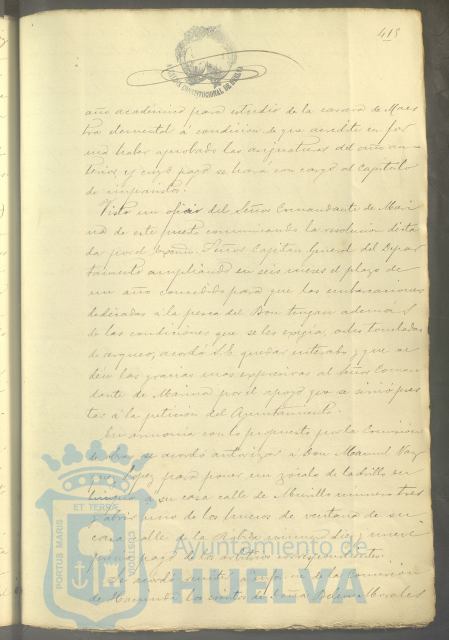 415
ALCALDIA CONSTITUCIONAL DE HUELVA
año académico para estudio de la carrera de Maes
tra elemental á condición de que acredite en for
ma haber aprobado las asignaturas del año an
terior, y cuyo pago se hará con cargo al Capítulo
de imprevistos.
Visto un oficio del Señor Comandante de Mari
na de este puerto comunicando la resolución dicta
da por el Excmo. Señor Capitán General del Depar
tamento ampliando en seis meses el plazo de
un año concedido para que las embarcaciones
dedicadas á la pesca del Bou tengan además
de las condiciones que se les exigía, ocho toneladas
de arqueo, acordó S.E. quedar enterado y que se
den las gracias mas expresivas al Señor Coman
dante de Marina por el apoyo que se sirvió pres
tar á la petición del Ayuntamiento.
En armonía con lo propuesto por la Comisión
se acordó autorizar a Don Manuel Vaz
quez López para poner un zócalo de ladrillo
en su casa calle de Murillo número tres
y abrir uno de los huecos de ventana de su
casa calle de la Rábida número diez y nueve
previo pago de los arbitrios correspondientes.
Se acordó
de Hacienda los escritos de Doña Morales
PORTUS MARIS ET TERRÆ CUSTODIA
Ayuntamiento de
HUELVA